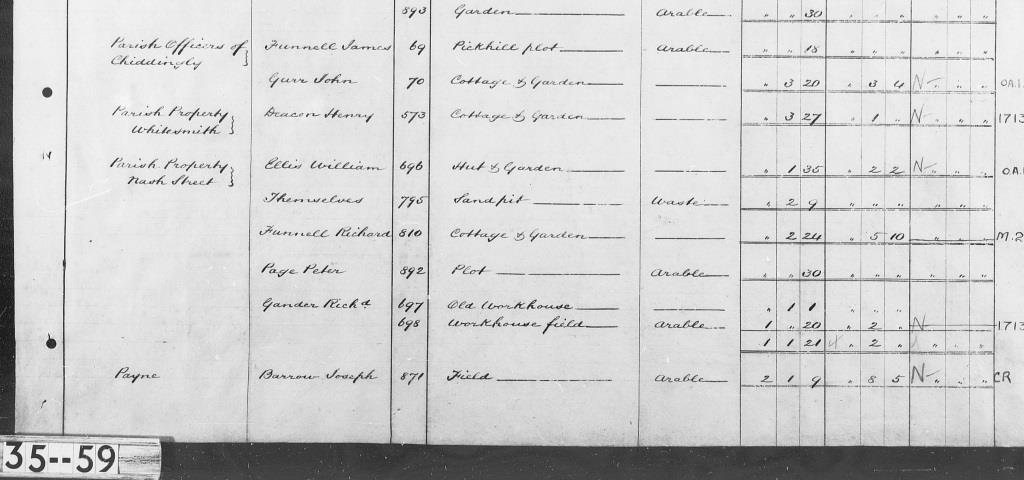 893 Garden Arable " " 30 " " " " " "
Parish Officers of } Funnell James 69 Pickhill plot Arable " " 18 " " " " " "
Chiddingly
Gurr John 70 Cottage & Garden " 3 20 " 3 4 N " " " O.A.1
Parish Property } Deacon Henry 573 Cottage & Garden " 3 27 " 1 " N " " " 1713
Whitesmith
Parish Property } Ellis William 696 Hut & Garden " 1 35 " 2 2 N " " " O.A.
Nash Street
Themselves 795 Sandpit Waste " 2 9 " " " " " "
Funnell Richard 810 Cottage & Garden " 2 24 " 5 10 " " " M.2
Page Peter 892 Plot Arable " " 30 " " " " " "
Gander Richd 697 Old Workhouse " 1 1 " " "
698 Workhouse field Arable 1 " 20 " 2 " N 1713
1 1 21 " 2 " " " "
Payne Barrow Joseph 871 Field Arable 2 1 9 " 8 5 N " " " CR
35--59